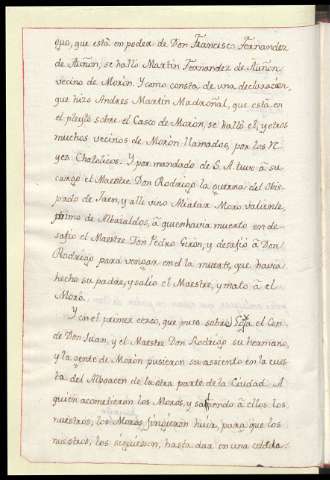 ejo, que está en poder de Don Francisco Fernandez
de Auñón, se halló Martin Fernandez de Auñón,
vecino de Morón. Y como consta, de una declaración,
que hizo Andres Martin Madroñal, que está en
el pleyto sobre el Casco de Morón, se halló él, y otros
muchos vecinos de Morón llamados, por los R.
yes Chatolicos. Y por mandado de S. A. tuvo â su
cargo el Maestre Don Rodrigo la guerra del Obis-
pado de Jaen, y alli vino Aliatar Moro valiente,
primo de Albaialdos, â quien havia muerto en de-
safio el Maestre Don Pedro Giron, y desafió â Don
Rodrigo para vengar en el la muerte, que havia
hecho su padre, y salio el Maestre, y mató â el
Moro.
Y en el primer cerco, que puso sobre Loja el Con-
de Don Juan, y el Maestre Don Rodrigo su hermano,
y la gente de Morón pusieron su assiento en la cues-
ta del Alboacen de la otra parte de la Ciudad. A
quien acometieron los Moros, y saliendo â ellos los
nuestros, los Moros fingieron huir, para que los
nuestros, los siguiessen, hasta dar en una celada